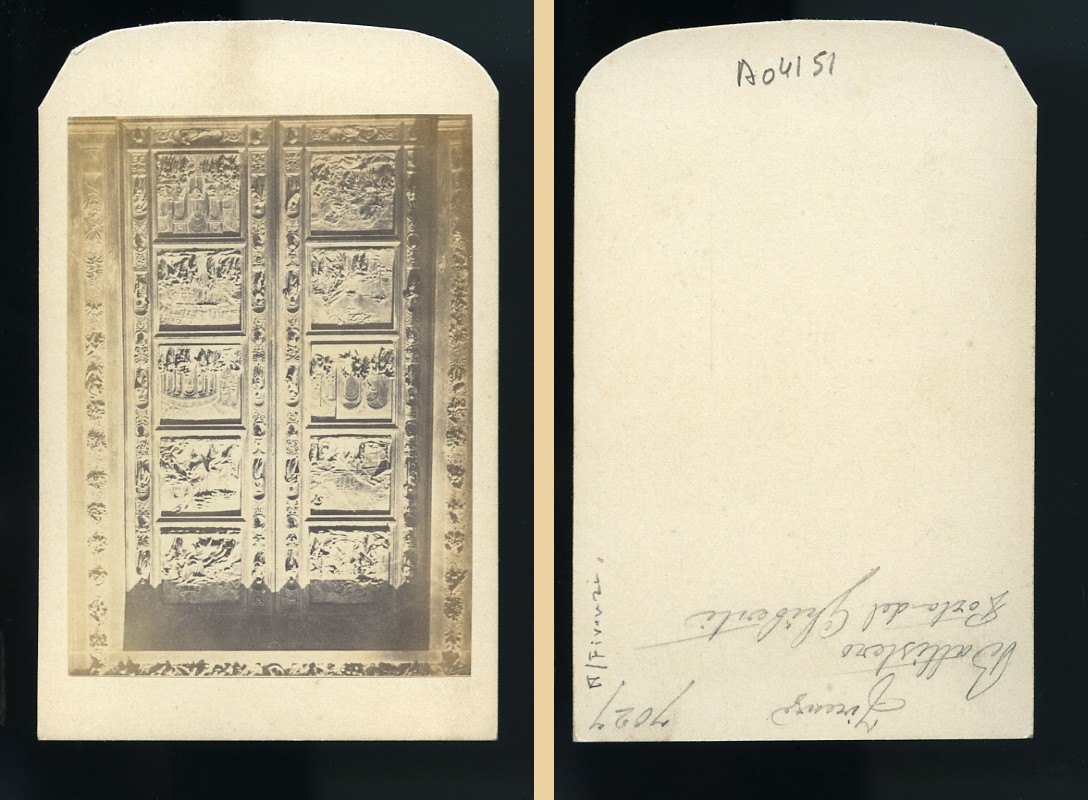 A04151
Firenze
Battistero
Porta del Ghiberti
7027
A/Firenze.